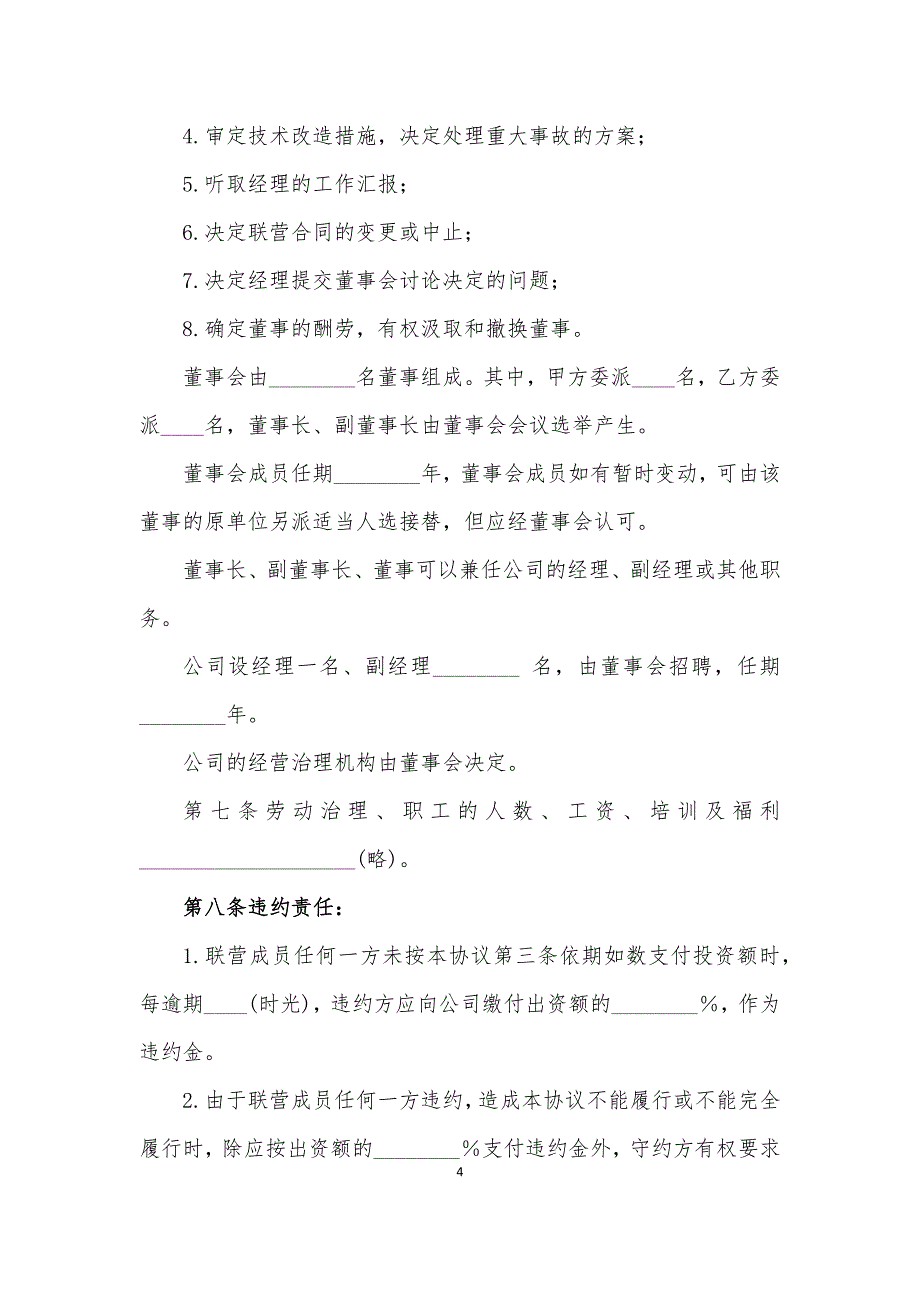 4.审定技术改造措施，决定处理重大事故的方案；
5.听取经理的工作汇报；
6.决定联营合同的变更或中止；
7.决定经理提交董事会讨论决定的问题；
8.确定董事的酬劳，有权汲取和撤换董事。
董事会由________名董事组成。其中，甲方委派____名，乙方委
派____名，董事长、副董事长由董事会会议选举产生。
董事会成员任期________年，董事会成员如有暂时变动，可由该
董事的原单位另派适当人选接替，但应经董事会认可。
董事长、副董事长、董事可以兼任公司的经理、副经理或其他职
务。
公司设经理一名、副经理________ 名，由董事会招聘，任期
________年。
公司的经营治理机构由董事会决定。
第七条劳动治理、职工的人数、工资、培训及福利
____________________(略)。
第八条违约责任：
1.联营成员任何一方未按本协议第三条依期如数支付投资额时，
每逾期____(时光)，违约方应向公司缴付出资额的________%，作为
违约金。
2.由于联营成员任何一方违约，造成本协议不能履行或不能完全
履行时，除应按出资额的________%支付违约金外，守约方有权要求
4